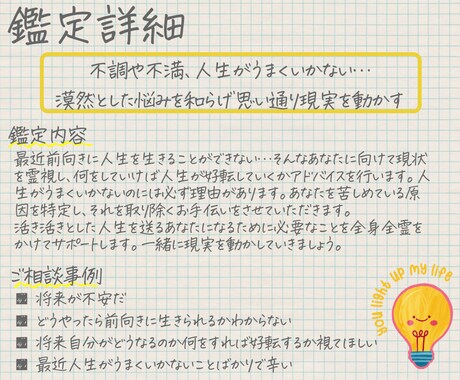 鑑定詳細
不調や不満、人生がうまくいかない…
漠然とした悩みを和らげ思い通り現実を動かす
鑑定内容
最近前向きに人生を生きることができない…そんなあなたに向けて現状
を霊視し、何をしていけば人生が好転していくかアドバイスを行います。人
生がうまくいかないのには必ず理由があります。あなたを苦しめている原
因を特定し、それを取り除くお手伝いをさせていただきます。
活き活きとした人生を送るあなたになるために必要なことを全身全霊を
かけてサポートします。一緒に現実を動かしていきましょう。
ご相談事例
将来が不安だ
どうやったら前向きに生きられるかわからない
将来自分がどうなるのか何をすれば好転するか視てほしい
最近人生がうまくいかないことばかりで辛い
you light up my life